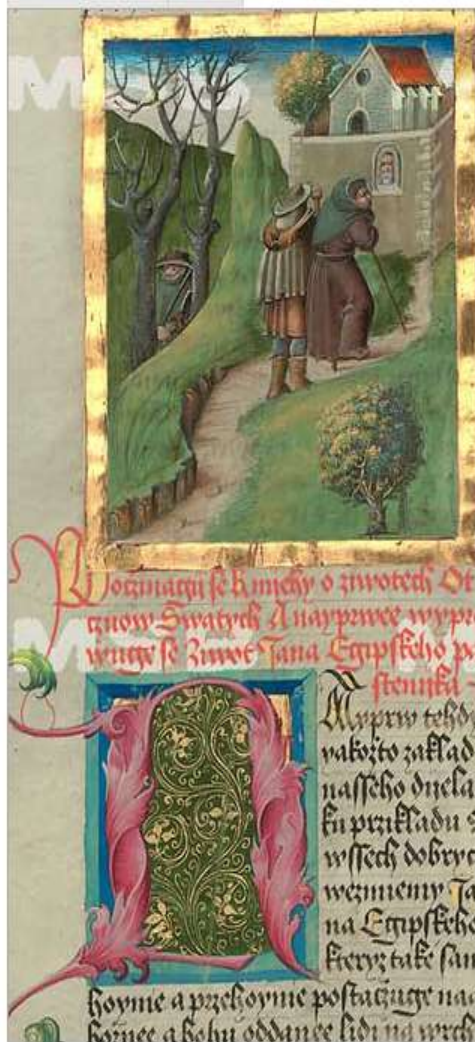 Poczinagii se knichy o ziwotech Ot
cznow Swatych A nayprwee wypi
wuge se Ziwot Jana Egipskeho p
stennika
Nayprw tehd
yakozto zaklad
nasseho diela
ku przikladu
wssech dobrych
wezmiemy Ja
na Egipskeho
kteryz take sam
hoynie a przehoynie postaczuge na
božnee a bohu oddanee lidi na wrch